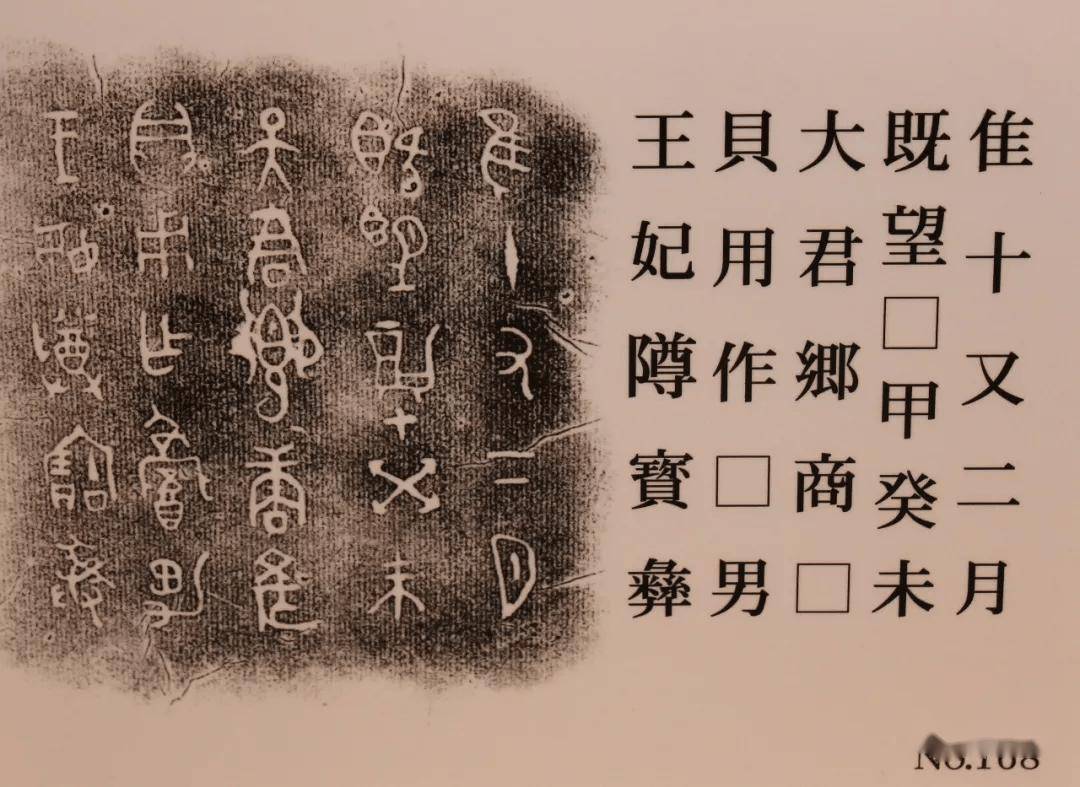 隹十又二月
既望□甲癸未
大君鄉商□
貝用作□男
王妃䧳寶彝
No.108